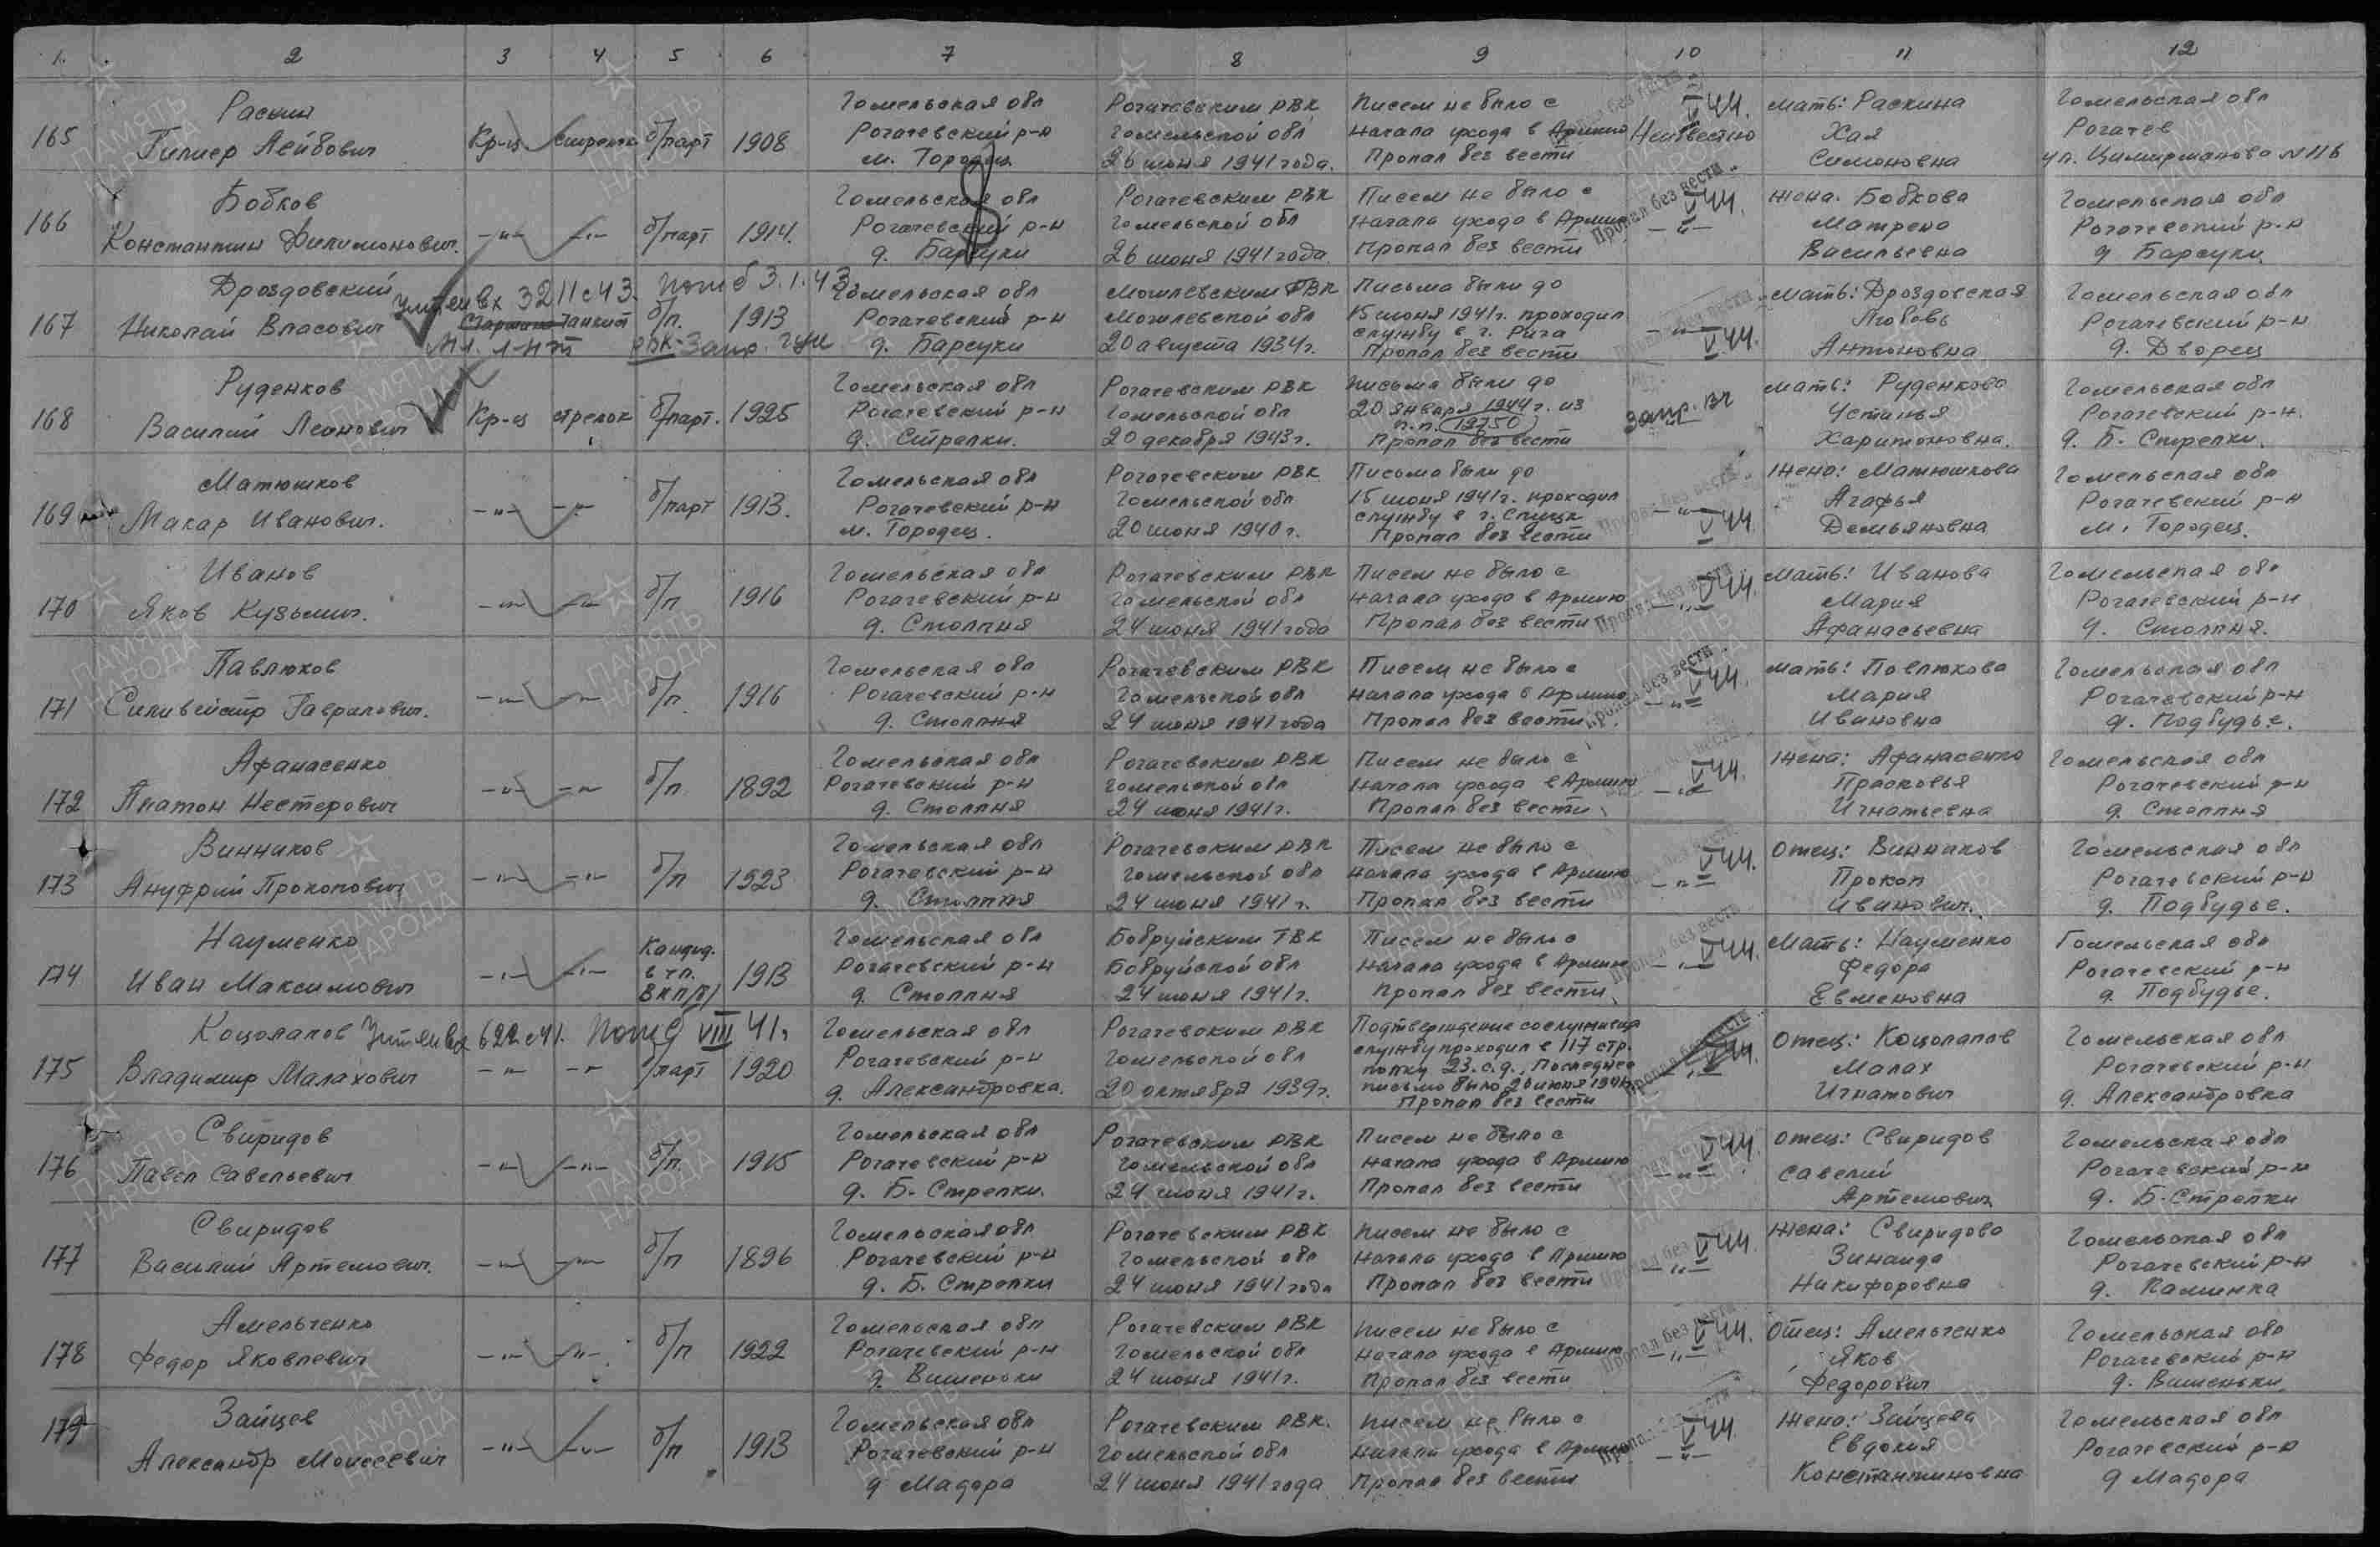 1. 2 3 4 5 6 7 8 9 10 11 12
165
Раскин
Гилмер Лейбович
Кр-ц стрелок б/парт 1908
Гомельская обл
Рогачевский р-н
м. Городец
Рогачевским РВК
Гомельской обл
26 июня 1941 года.
Писем не было с
начала ухода в Армию
Пропал без вести
V 44.
Неизвестно
мать: Раскина
Хая
Симоновна
Гомельская обл
Рогачев
ул. Циммирманова № 116
166
Бобков
Константин Филимонович.
-"- -"- б/парт 1914.
Гомельская обл
Рогачевский р-н
д. Барсуки
Рогачевским РВК
Гомельской обл
26 июня 1941 года.
Писем не было с
начала ухода в Армию
Пропал без вести
Пропал без вести
V 44.
-"-
жена. Бобкова
Матрена
Васильевна
Гомельская обл
Рогачевский р-н
д Барсуки
167
Дроздовский
Николай Власович
Учтен вх 3211 с 43. Погиб 3.1.43
Старшина Танкист б/п. 1913
Мл. л-нт
Гомельская обл
Рогачевский р-н
д. Барсуки
Могилевским ГВК
Могилевской обл
20 августа 1934 г.
Письма были до
15 июня 1941 г. проходил
службу в г. Рига
Пропал без вести
-"- V 44.
мать: Дроздовская
Любовь
Антоновна
Гомельская обл
Рогачевский р-н
д. Дворец
168
Руденков
Василий Леонович
Кр-ц стрелок б/парт. 1925
Гомельская обл
Рогачевский р-н
д. Стрелки.
Рогачевским РВК
Гомельской обл
20 декабря 1943 г.
Письма были до
20 января 1944 г. из
п.п. 19750
Пропал без вести
запр. вч
мать: Руденкова
Устинья
Харитоновна.
Гомельская обл
Рогачевский р-н.
д. Б. Стрелки.
169
Матюшков
Макар Иванович.
-"- -"- б/парт 1913.
Гомельская обл
Рогачевский р-н
м. Городец.
Рогачевским РВК
Гомельской обл
20 июня 1940 г.
Письма были до
15 июня 1941 г. проходил
службу в г. Слуцк
Пропал без вести
Пропал без вести
-"- V 44.
жена: Матюшкова
Агафья
Демьяновна
Гомельская обл
Рогачевский р-н
м. Городец.
170
Иванов
Яков Кузьмич.
-"- -"- б/п 1916
Гомельская обл
Рогачевский р-н
д. Столпня
Рогачевским РВК
Гомельской обл
24 июня 1941 года
Писем не было с
начала ухода в Армию
Пропал без вести
Пропал без вести
-"- V 44.
мать: Иванова
Мария
Афанасьевна
Гомельская обл
Рогачевский р-н
д. Столпня.
171
Павлюков
Силивейстр Гаврилович.
-"- -"- б/п. 1916
Гомельская обл
Рогачевский р-н
д. Столпня
Рогачевским РВК
Гомельской обл
24 июня 1941 года
Писем не было с
начала ухода в Армию
Пропал без вести
Пропал без вести
V 44.
-"-
мать: Павлюкова
Мария
Ивановна
Гомельская обл
Рогачевский р-н
д. Подбудье.
172
Афанасенко
Платон Нестерович
-"- -"- б/п 1892
Гомельская обл
Рогачевский р-н
д. Столпня
Рогачевским РВК
Гомельской обл
24 июня 1941 г.
Писем не было с
начала ухода в Армию
Пропал без вести
V 44.
-"-
жена: Афанасенко
Прасковья
Игнатьевна
Гомельская обл
Рогачевский р-н
д. Столпня
173
Винников
Ануфрий Прокопович
-"- -"- б/п 1923
Гомельская обл
Рогачевский р-н
д. Столпня
Рогачевским РВК
Гомельской обл
24 июня 1941 г.
Писем не было с
начала ухода в Армию
Пропал без вести
V 44.
-"-
Отец: Винников
Прокоп
Иванович.
Гомельская обл
Рогачевский р-н
д. Подбудье.
174
Науменко
Иван Максимович
-"- -"-
Кандид.
в чл.
ВКП/б/
1913
Гомельская обл
Рогачевский р-н
д. Столпня
Бобруйским ГВК
Бобруйской обл
24 июня 1941 г.
Писем не было с
начала ухода в Армию
Пропал без вести
Пропал без вести
-"- V 44.
Мать: Науменко
Федора
Евменовна
Гомельская обл
Рогачевский р-н
д. Подбудье.
175
Коцолапов
Владимир Малахович
Учтен вх 622 с 41. Погиб VIII 41 г
-"- -"- б/парт 1920
Гомельская обл
Рогачевский р-н
д. Александровка.
Рогачевским РВК
Гомельской обл
20 октября 1939 г.
Подтверждение сослуживца
службу проходил в 117 стр.
полку 23. с.д. Последнее
письмо было 20 июня 1941
Пропал без вести
Пропал без вести
-"- V 44.
Отец: Коцолапов
Малах
Игнатович
Гомельская обл
Рогачевский р-н
д. Александровка
176
Свиридов
Павел Савельевич
-"- -"- б/п. 1915
Гомельская обл
Рогачевский р-н
д. Б. Стрелки.
Рогачевским РВК
Гомельской обл
24 июня 1941 г.
Писем не было с
начала ухода в Армию
Пропал без вести
V 44.
-"-
отец: Свиридов
Савелий
Артемович
Гомельская обл
Рогачевский р-н
д. Б. Стрелки
177
Свиридов
Василий Артемович.
-"- -"- б/п 1896
Гомельская обл
Рогачевский р-н
д. Б. Стрелки
Рогачевским РВК
Гомельской обл
24 июня 1941 года
Писем не было с
начала ухода в Армию
Пропал без вести
V 44.
-"-
жена: Свиридова
Зинаида
Никифоровна
Гомельская обл
Рогачевский р-н
д. Каминка
178
Амельченко
Федор Яковлевич
-"- -"- б/п 1922
Гомельская обл
Рогачевский р-н
д. Вишеньки
Рогачевским РВК
Гомельской обл
24 июня 1941 г.
Писем не было с
начала ухода в Армию
Пропал без вести
Пропал без вести
V 44.
-"-
Отец: Амельченко
Яков
Федорович
Гомельская обл
Рогачевский р-н
д. Вишеньки
179
Зайцев
Александр Моисеевич
-"- -"- б/п 1913
Гомельская обл
Рогачевский р-н
д Мадора
Рогачевским РВК.
Гомельской обл
24 июня 1941 года
Писем не было с
начала ухода в Армию
Пропал без вести
V 44
-"-
жена: Зайцева
Евдокия
Константиновна
Гомельская обл
Рогачевский р-н
д Мадора
ПАМЯТЬ
НАРОДА